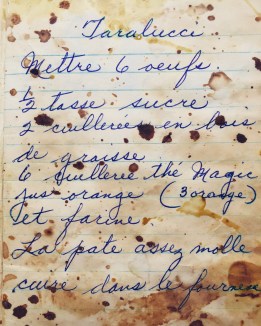 Taralucci
Mettre 6 oeufs.
1/2 tasse sucre
2 cuillerées en bois
de graisse
6 cuillerée thé Magic
jus orange (3 orange)
et farine.
La pate assez molle
cuise dans le fourneau